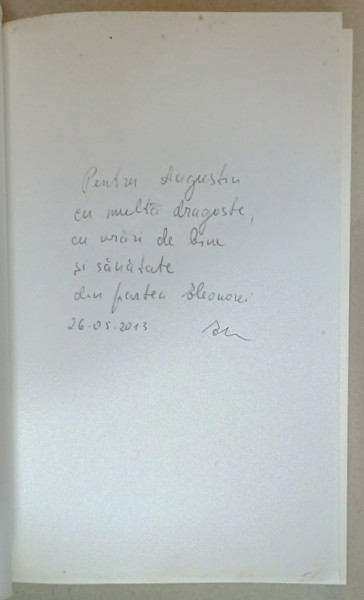 Pentru Augustin
cu multă dragoste,
cu urări de bine
și sănătate
din partea Eleonorei
26-05-2013